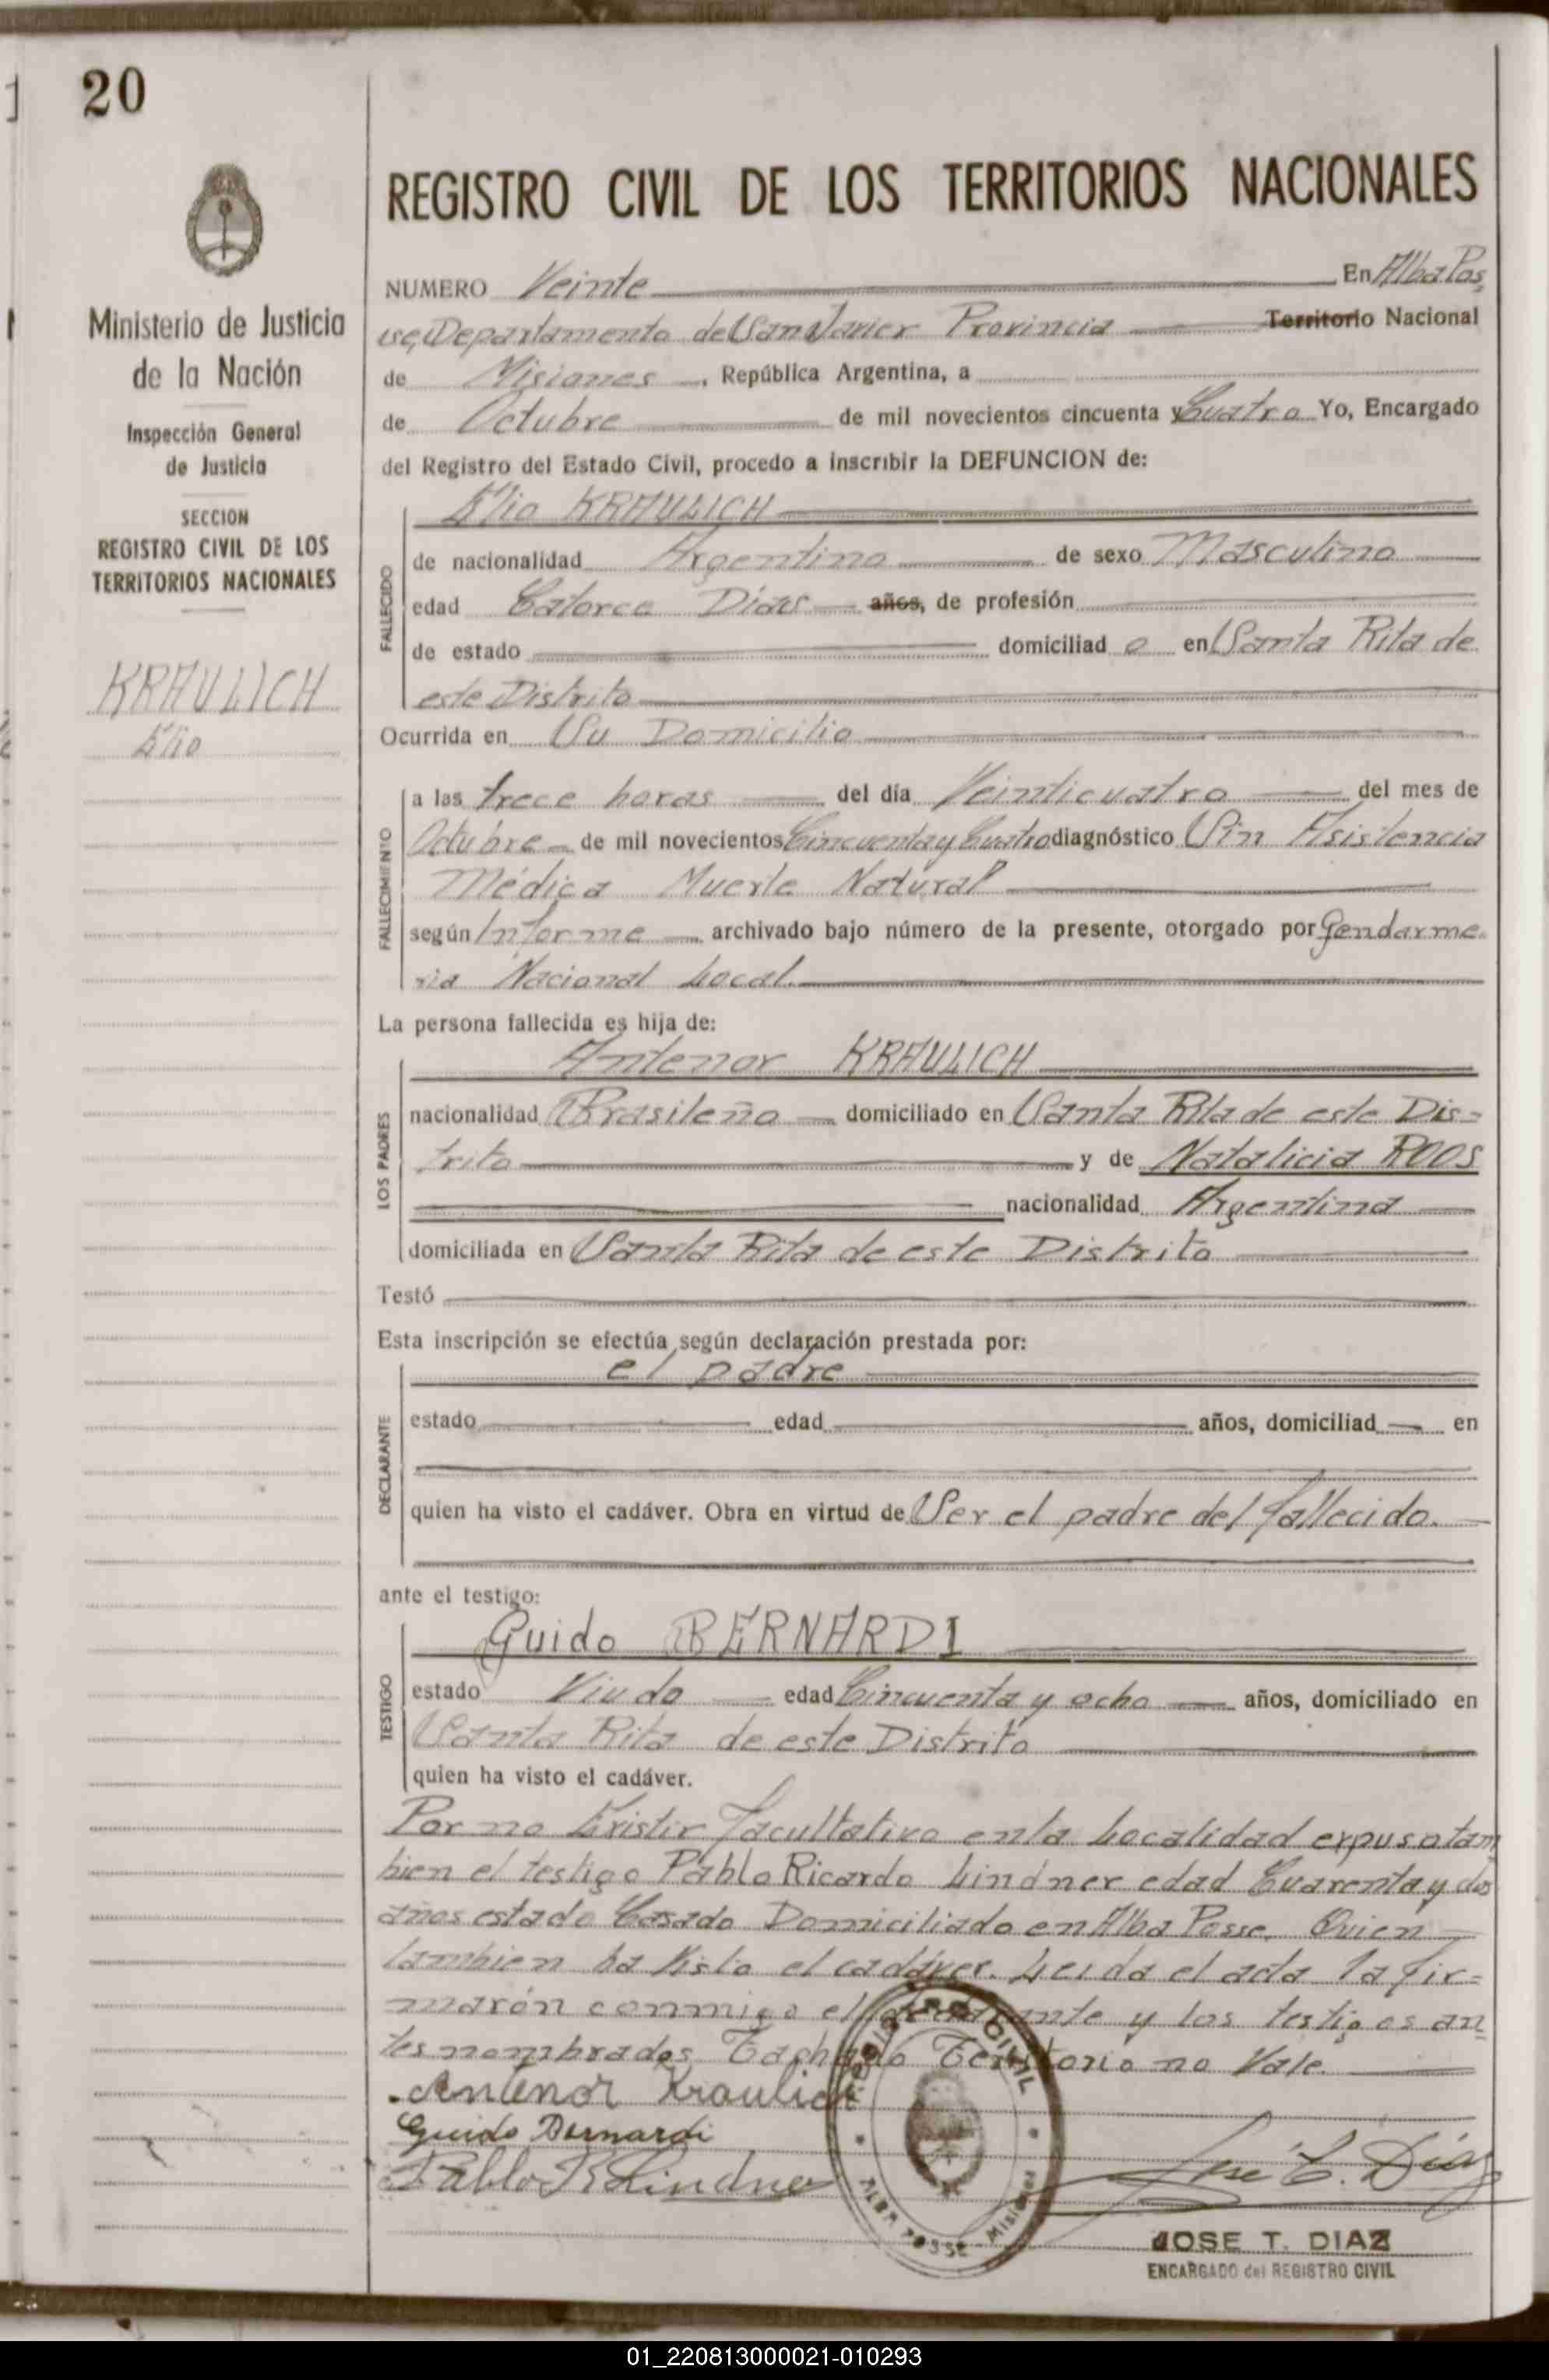 20
REGISTRO CIVIL DE LOS TERRITORIOS NACIONALES
Ministerio de Justicia
de la Nación
Inspección General
de Justicia
SECCION
REGISTRO CIVIL DE LOS
TERRITORIOS NACIONALES
KRAULICH
Elio
NUMERO Veinte En Alba Pos
se, Departamento de San Javier Provincia Territorio Nacional
de Misiones . República Argentina, a
de Octubre de mil novecientos cincuenta y Cuatro Yo, Encargado
del Registro del Estado Civil, procedo a inscribir la DEFUNCION de:
Elio KRAULICH
FALLECIDO
de nacionalidad Argentino de sexo Masculino
edad Catorce Dias años, de profesión
de estado domiciliad o en Santa Rita de
este Distrito
Ocurrida en Su Domicilio
FALLECIMIENTO
a las trece horas del día Veinticuatro del mes de
Octubre de mil novecientos Cincuenta y Cuatro diagnóstico Sin Asistencia
Médica Muerte Natural
según Informe archivado bajo número de la presente, otorgado por Gendarme-
ria Nacional Local.
La persona fallecida es hija de:
Antenor KRAULICH
LOS PADRES
nacionalidad Brasileño domiciliado en Santa Rita de este Dis=
trito y de Natalicia ROOS
nacionalidad Argentina
domiciliada en Santa Rita de este Distrito
Testó
Esta inscripción se efectúa según declaración prestada por:
el padre
DECLARANTE
estado edad años, domiciliad en
quien ha visto el cadáver. Obra en virtud de Ser el padre del fallecido.
ante el testigo:
Guido BERNARDI
TESTIGO
estado Viudo edad Cincuenta y ocho años, domiciliado en
Santa Rita de este Distrito
quien ha visto el cadáver.
Por no Existir facultativo en la Localidad expuso tam
bien el testigo Pablo Ricardo Lindner edad Cuarenta y dos
años estado Casado Domiciliado en Alba Posse. Quien
tambien ha Visto el cadáver. Leida el acta la fir=
marón conmigo el y los testigos an
tes nombrados Tachado Territorio no Vale.
Antenor Kraulich
Guido Bernardi
Pablo R Lindner
José T. Díaz
REGISTRO CIVIL
ALBA POSSE - Misiones
JOSE T. DIAZ
ENCARGADO del REGISTRO CIVIL
01_220813000021-010293